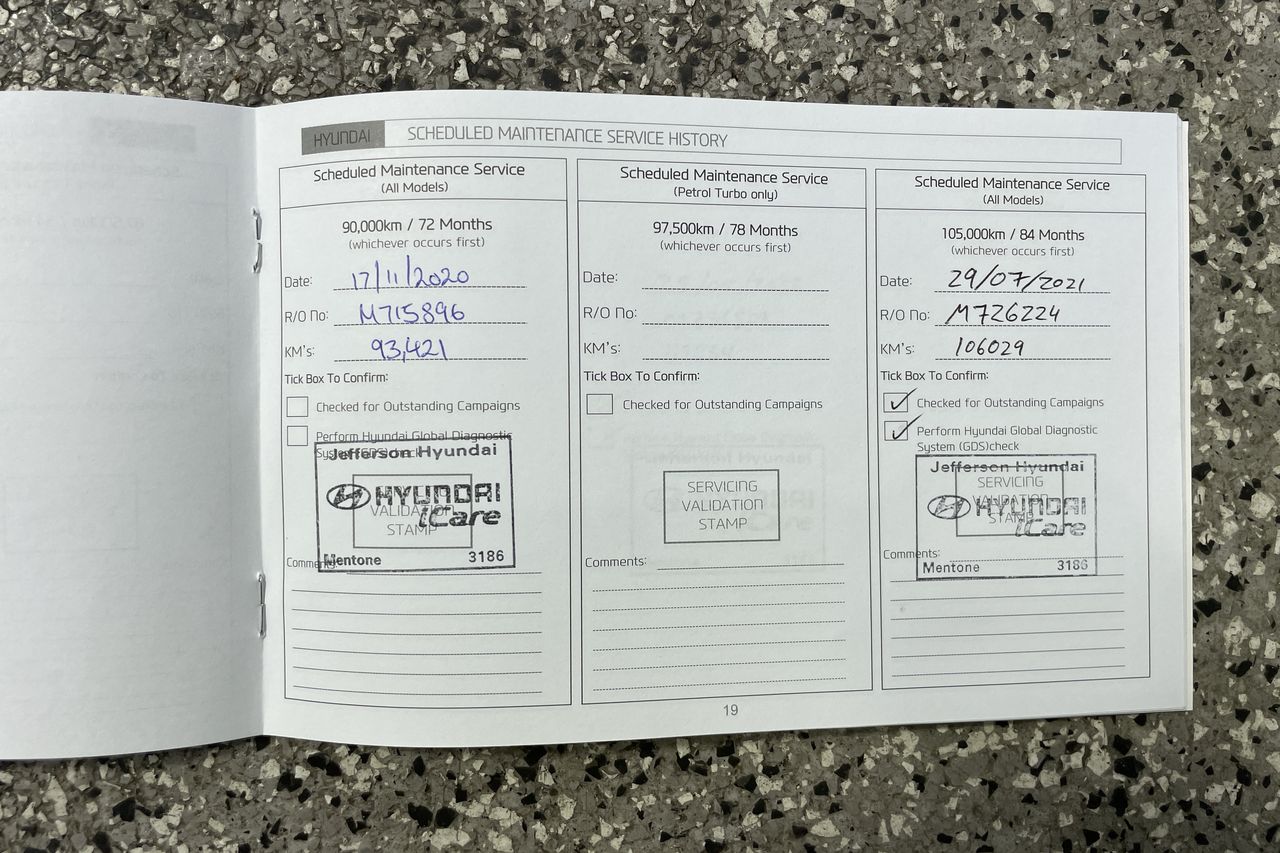 HYUNDAI SCHEDULED MAINTENANCE SERVICE HISTORY
Scheduled Maintenance Service
(All Models)
90,000km / 72 Months
(whichever occurs first)
Date: 17/11/2020
R/O No: M715896
KM's: 93,421
Tick Box To Confirm:
Checked for Outstanding Campaigns
Perform Hyundai Global Diagnostic
System (GDS)check
Jefferson Hyundai
HYUNDAI
iCare
VALIDATION
STAMP
Mentone 3186
Comments:
Scheduled Maintenance Service
(Petrol Turbo only)
97,500km / 78 Months
(whichever occurs first)
Date:
R/O No:
KM's:
Tick Box To Confirm:
Checked for Outstanding Campaigns
SERVICING
VALIDATION
STAMP
Comments:
Scheduled Maintenance Service
(All Models)
105,000km / 84 Months
(whichever occurs first)
Date: 29/07/2021
R/O No: M726224
KM's: 106029
Tick Box To Confirm:
Checked for Outstanding Campaigns
Perform Hyundai Global Diagnostic
System (GDS)check
Jefferson Hyundai
SERVICING
VALIDATION
STAMP
HYUNDAI
iCare
Comments:
Mentone 3186
19